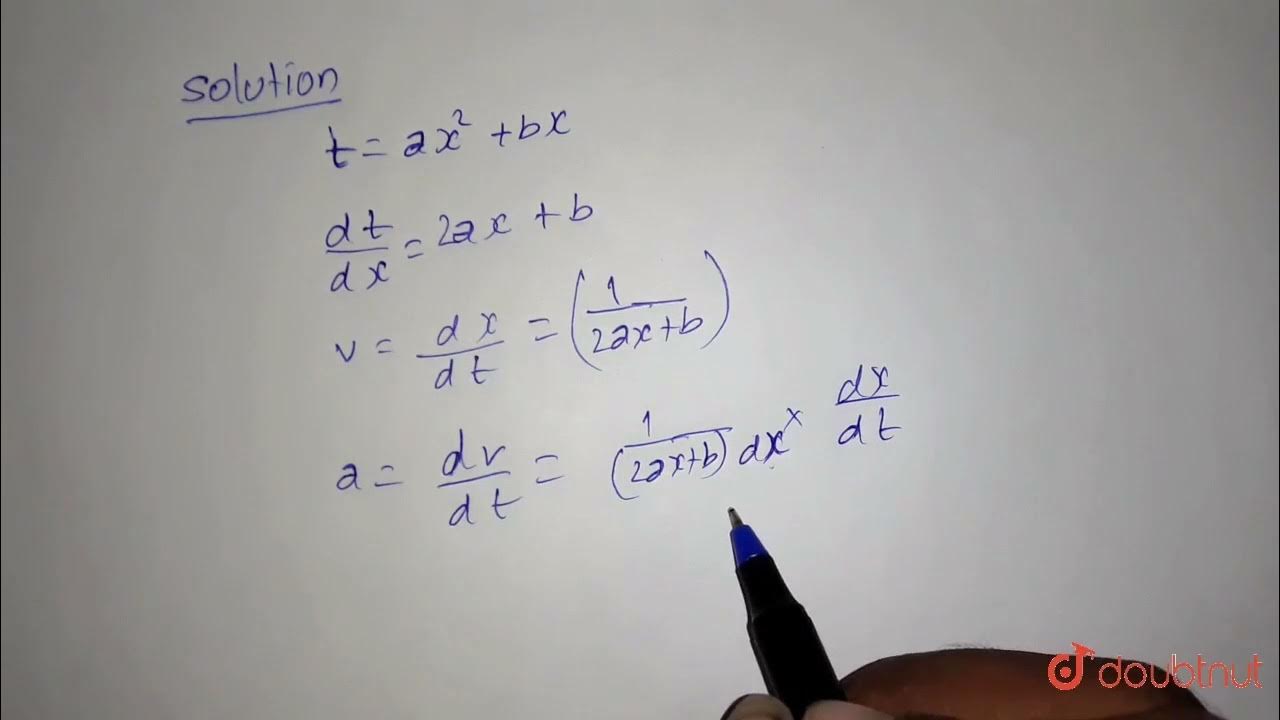 solution
t = ax² + bx
dt/dx = 2ax + b
v = dx/dt = (1/2ax+b)
a = dv/dt = 1/(2ax+b) dx × dx/dt
doubtnut